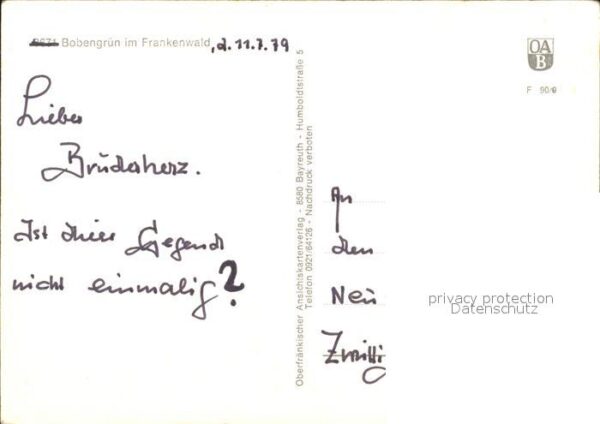 8671 Bobengrün im Frankenwald, d. 11.7.79
Lieber
Bruderherz.
Ist diese Gegend
nicht einmalig?
Oberfränkischer Ansichtskartenverlag - 8580 Bayreuth - Humboldtstraße 5
Telefon 0921/64126 - Nachdruck verboten
OA
B
F 90/9
An
den
Neu
Zwitti
privacy protection
Datenschutz